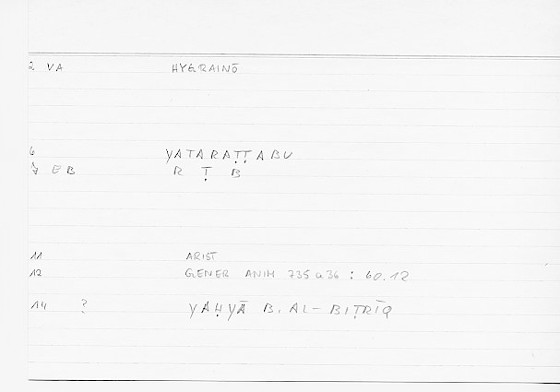 2 VA HYGRAINŌ
6 YATARAṬṬABU
EB R Ṭ B
11 ARIST
12 GENER ANIM 735a36 : 60.12
14 ? YAḤYĀ B. AL-BIṬRĪQ